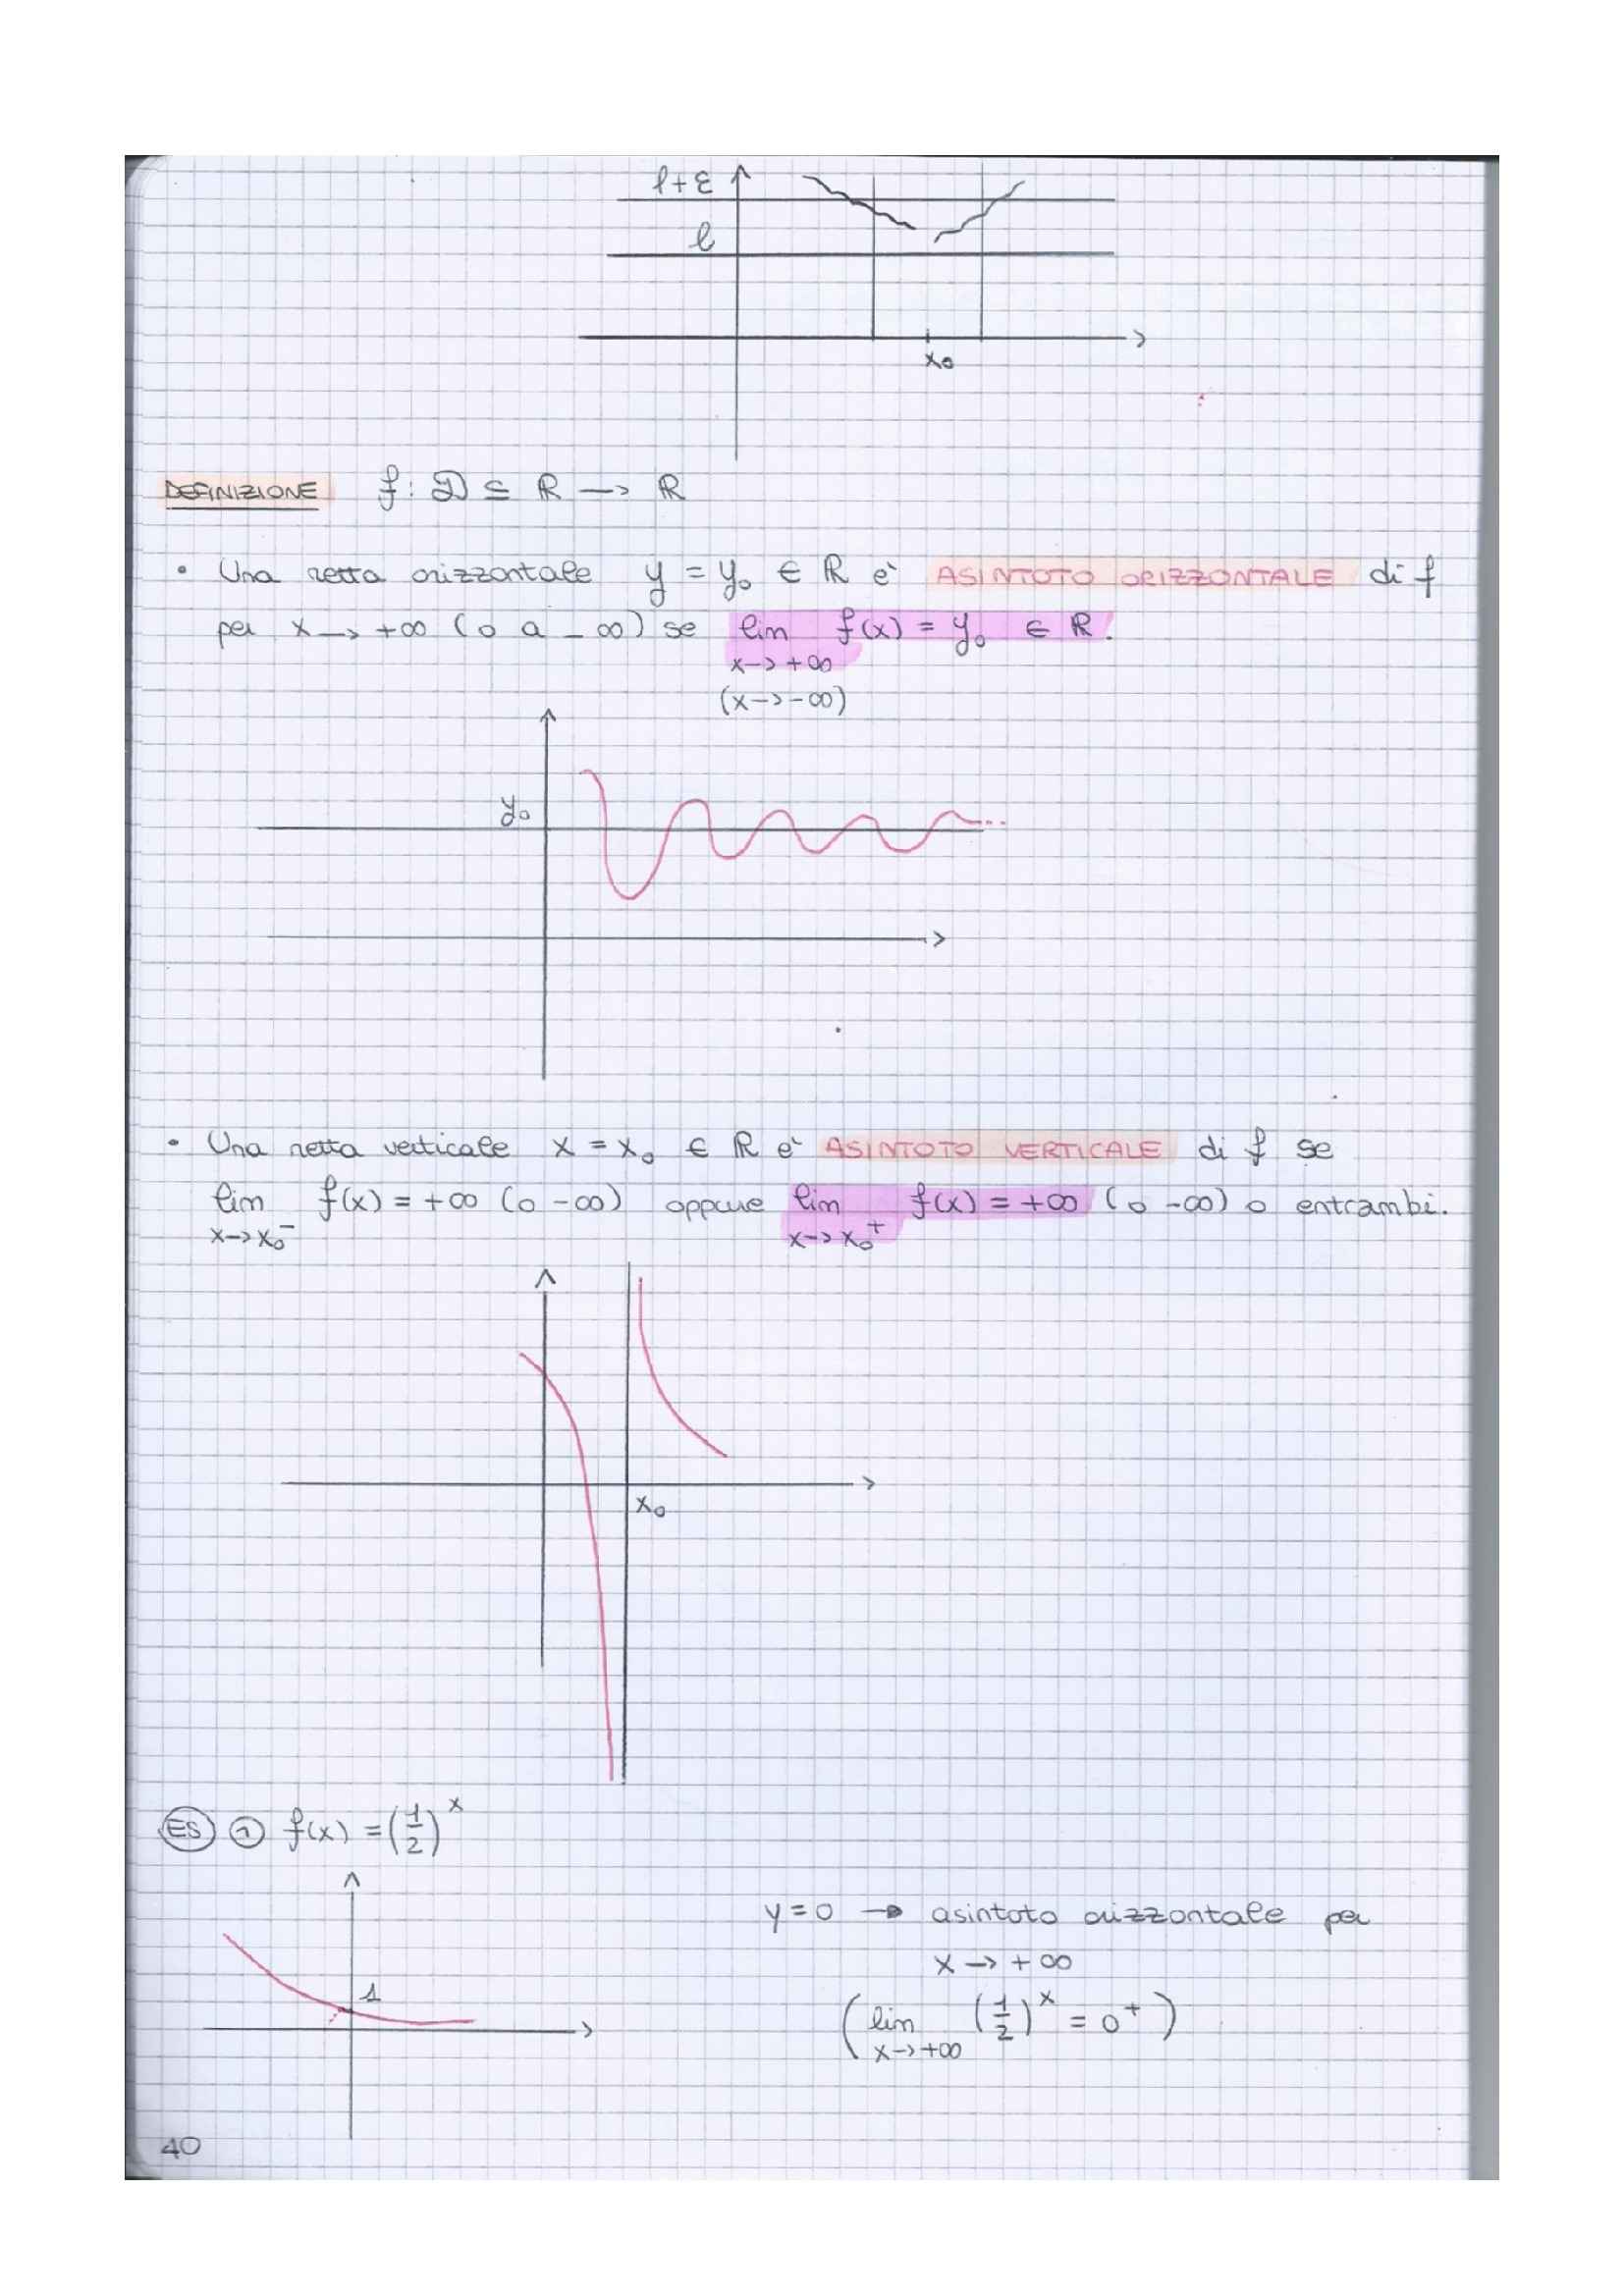 l+ε
l
x₀
DEFINIZIONE f: D ⊆ ℝ → ℝ
• Una retta orizzontale y = y₀ ∈ ℝ è ASINTOTO ORIZZONTALE di f
per x → +∞ (o a -∞) se lim f(x) = y₀ ∈ ℝ.
x → +∞
(x → -∞)
y₀
• Una retta verticale x = x₀ ∈ ℝ è ASINTOTO VERTICALE di f se
lim f(x) = +∞ (o -∞) oppure lim f(x) = +∞ (o -∞) o entrambi.
x → x₀⁻ x → x₀⁺
x₀
ES ① f(x) = (1/2)^x
y = 0 → asintoto orizzontale per
x → +∞
1
(lim (1/2)^x = 0⁺)
x → +∞
40